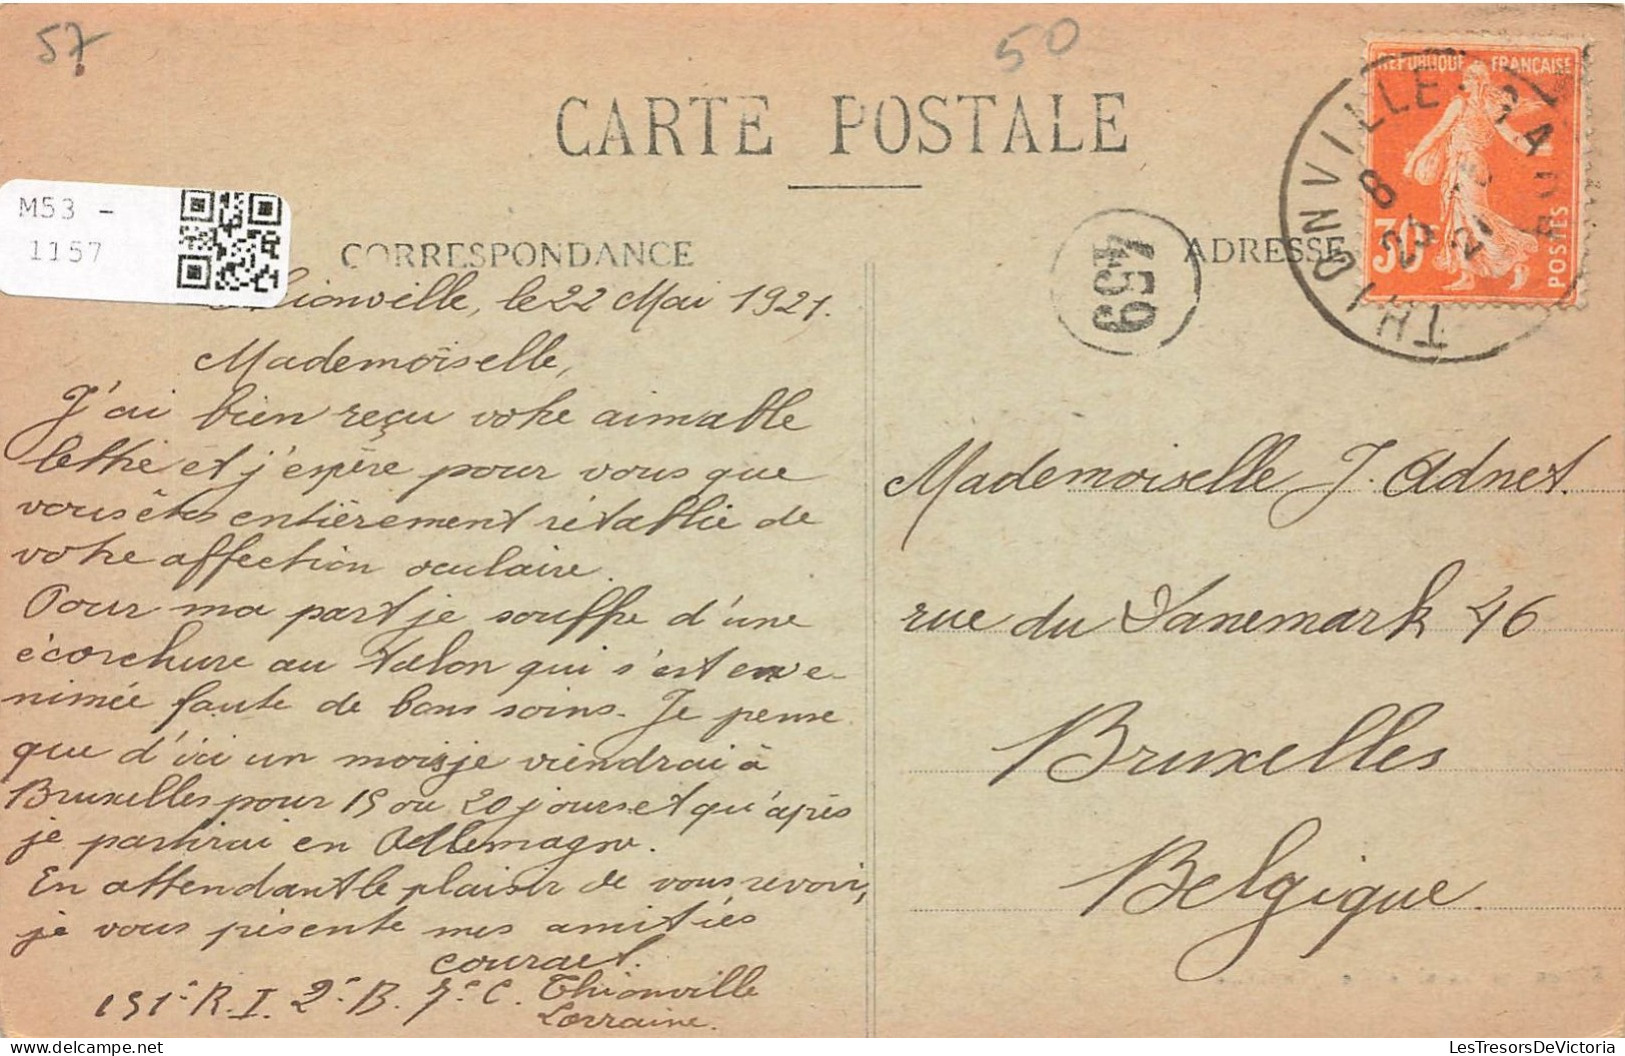 57
50
CARTE POSTALE
M53 -
1157
CORRESPONDANCE
ADRESSE
459
REPUBLIQUE FRANÇAISE
30
POSTES
THIONVILLE
Thionville, le 22 Mai 1921.
Mademoiselle,
J'ai bien reçu votre aimable
lettre et j'espère pour vous que
vous êtes entièrement rétablie de
votre affection oculaire.
Pour ma part je souffre d'une
écorchure au talon qui s'est enve-
nimée faute de bons soins. Je pense
que d'ici un mois je viendrai à
Bruxelles pour 15 ou 20 jours et qu'après
je partirai en Allemagne.
En attendant le plaisir de vous revoir,
je vous présente mes amitiés
151e R.I. 2e B. 7e C. Thionville
Lorraine.
Mademoiselle J. Adnet.
rue du Danemark 46
Bruxelles
Belgique.
LesTresorsDeVictoria